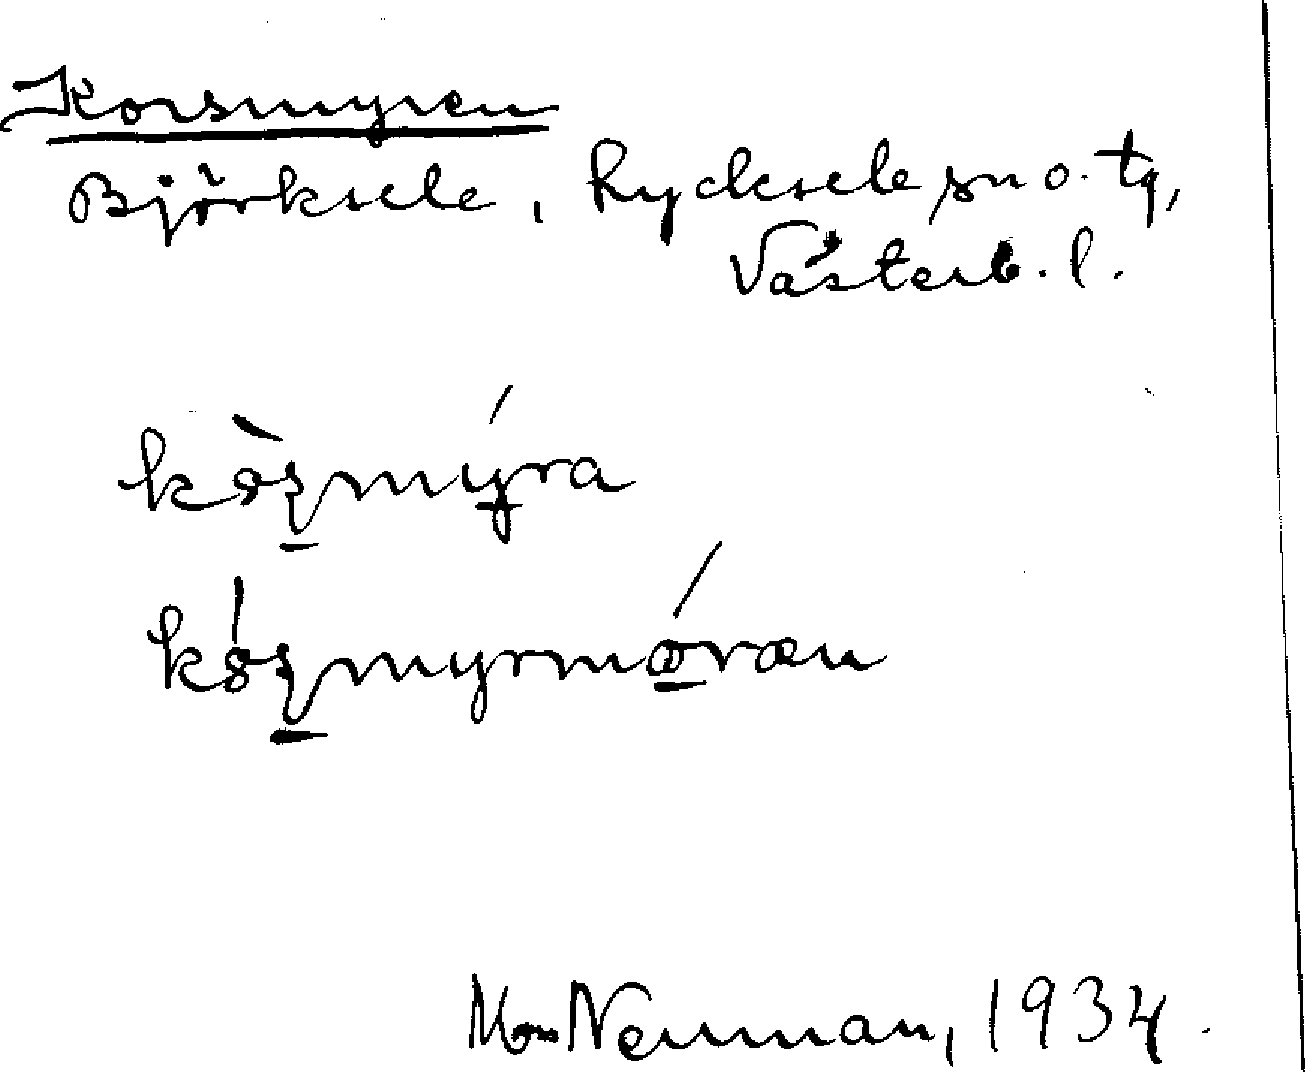 Korsmyren
Björksele, Lycksele sn o. tg,
Västerb. l.
kòʂmýra
kóʂmyrmóræn
Mon Neuman, 1934.